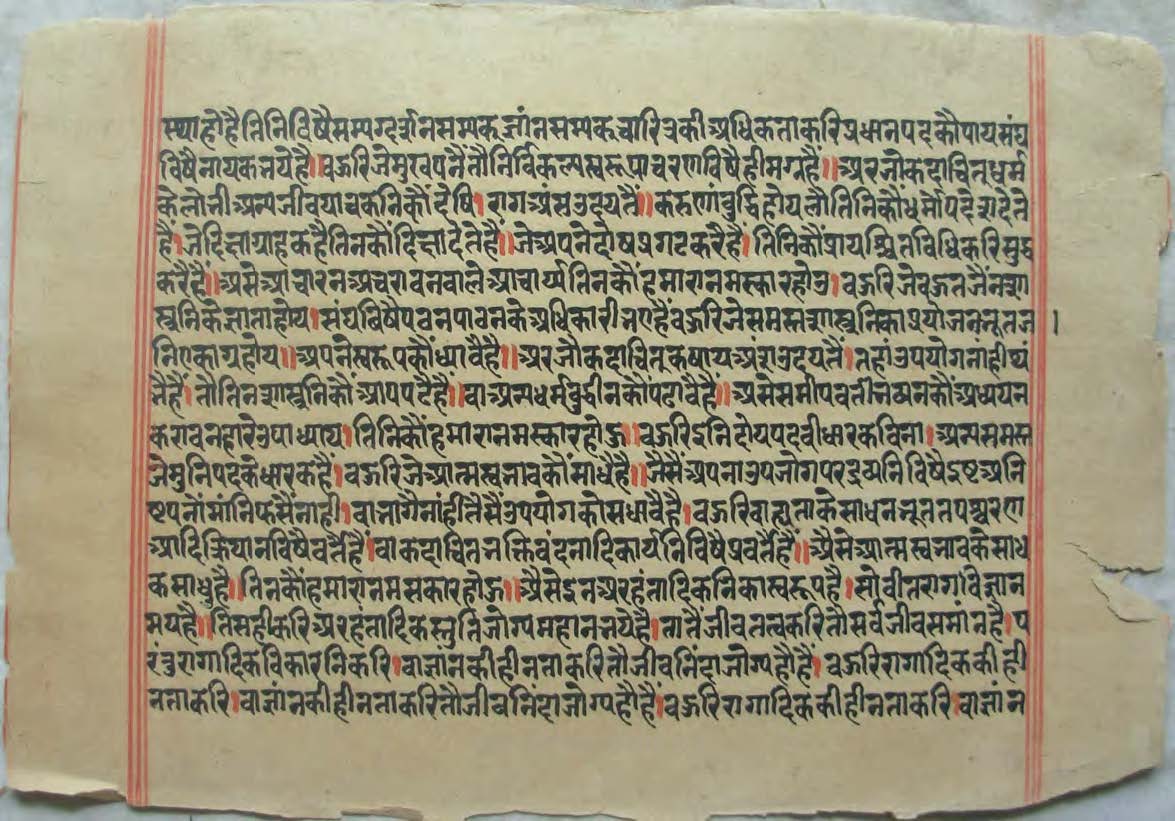 स्थाहोहैतिनिविषैसम्यग्दर्शनसम्यकज्ञांनसम्यकचारित्रकीअधिकताकरिप्रधानपदकौपायसंघ
विषैनायकनयेहै॥बऊरिजेमुखपनैंतौनिर्विकल्पस्वरूपाचरणविषैहीमग्नहैं॥अरजोकदाचित्धर्म
केलोनीअन्यजीवयाचकतिनिकौंदेषि।रागअंसउदयतैं॥करुणांबुद्धिहोयतौतिनिकौंधर्मोपदेशदेते
है।जेदिक्षाग्राहकहैतिनकौंदिक्षादेतेहैं॥जेअपनेदोषप्रगटकरैहैं।तिनिकौंप्रायश्चितविधिकरिसुद्ध
करैहैं॥असेआचारनअचरावनवालेआचार्यतिनकौंहमारानमस्कारहोउ।बऊरिजेबऊतजैंनशा
स्त्रनिकेज्ञाताहोय।संघविषैपवनपावनकेअधिकारीनएहैंबऊरिजेसमस्तशास्त्रनिकाप्रयोजननूतजा
निएकाग्रहोय॥अपनेस्वरूपकौंध्यावैहै॥अरजौकदाचित्कषायअंशउदयतैं।तहांउपयोगनांहीथं
नैहैं।तौतिनशास्त्रनिकौंआपपढैहैं॥वाअन्यधर्मबुद्धीनकौंपढावैहैं॥असेसमीपवर्तीनव्यनकौंअध्ययन
करावनहारेउपाध्याय।तिनिकौंहमारानमस्कारहोऊ॥बऊरिइनिदोयपदवीधारकविना।अन्यसमस्त
जेमुनिपदकेधारकहैं।बऊरिजेआत्मस्वनावकौंसाधैहै॥जैसैंअपनाउपजोगपरद्रव्यनिविषैइष्टअनि
ष्टपनोंमांनिफसैंनाही।वानागैनांहीतैसैंउपयोगकोसधावैहै।बऊरिबाह्यताकेसाधननूततपश्चरण
आदिक्रियानविषैवर्तैहैं।वाकदाचितनक्तिवंदनादिकार्यनिविषैप्रवर्तैहैं॥अैसेआत्मस्वनावकेसाध
कसाधुहै॥तिनकौंहमारानमसकारहोऊ॥अैसेइनअरहंतादिकनिकास्वरूपहै।सोवीतरागविज्ञान
मयहै॥तिसहीकरिअरहंतादिकस्तुतिजोग्यमहाननयेहै।तातैंजीवतत्वकरितौसर्वजीवसमांनहै।प
रंतुरागादिकविकारनिकरि।वाज्ञांनकीहीनताकरितौजीवनिंदाजोग्यहौहैं।बऊरिरागादिककीही
नताकरि।वाज्ञांनकीहीनताकरितौजीवनिंदाजोग्यहौहैं।बऊरिरागादिककीहीनताकरि।वाज्ञांन